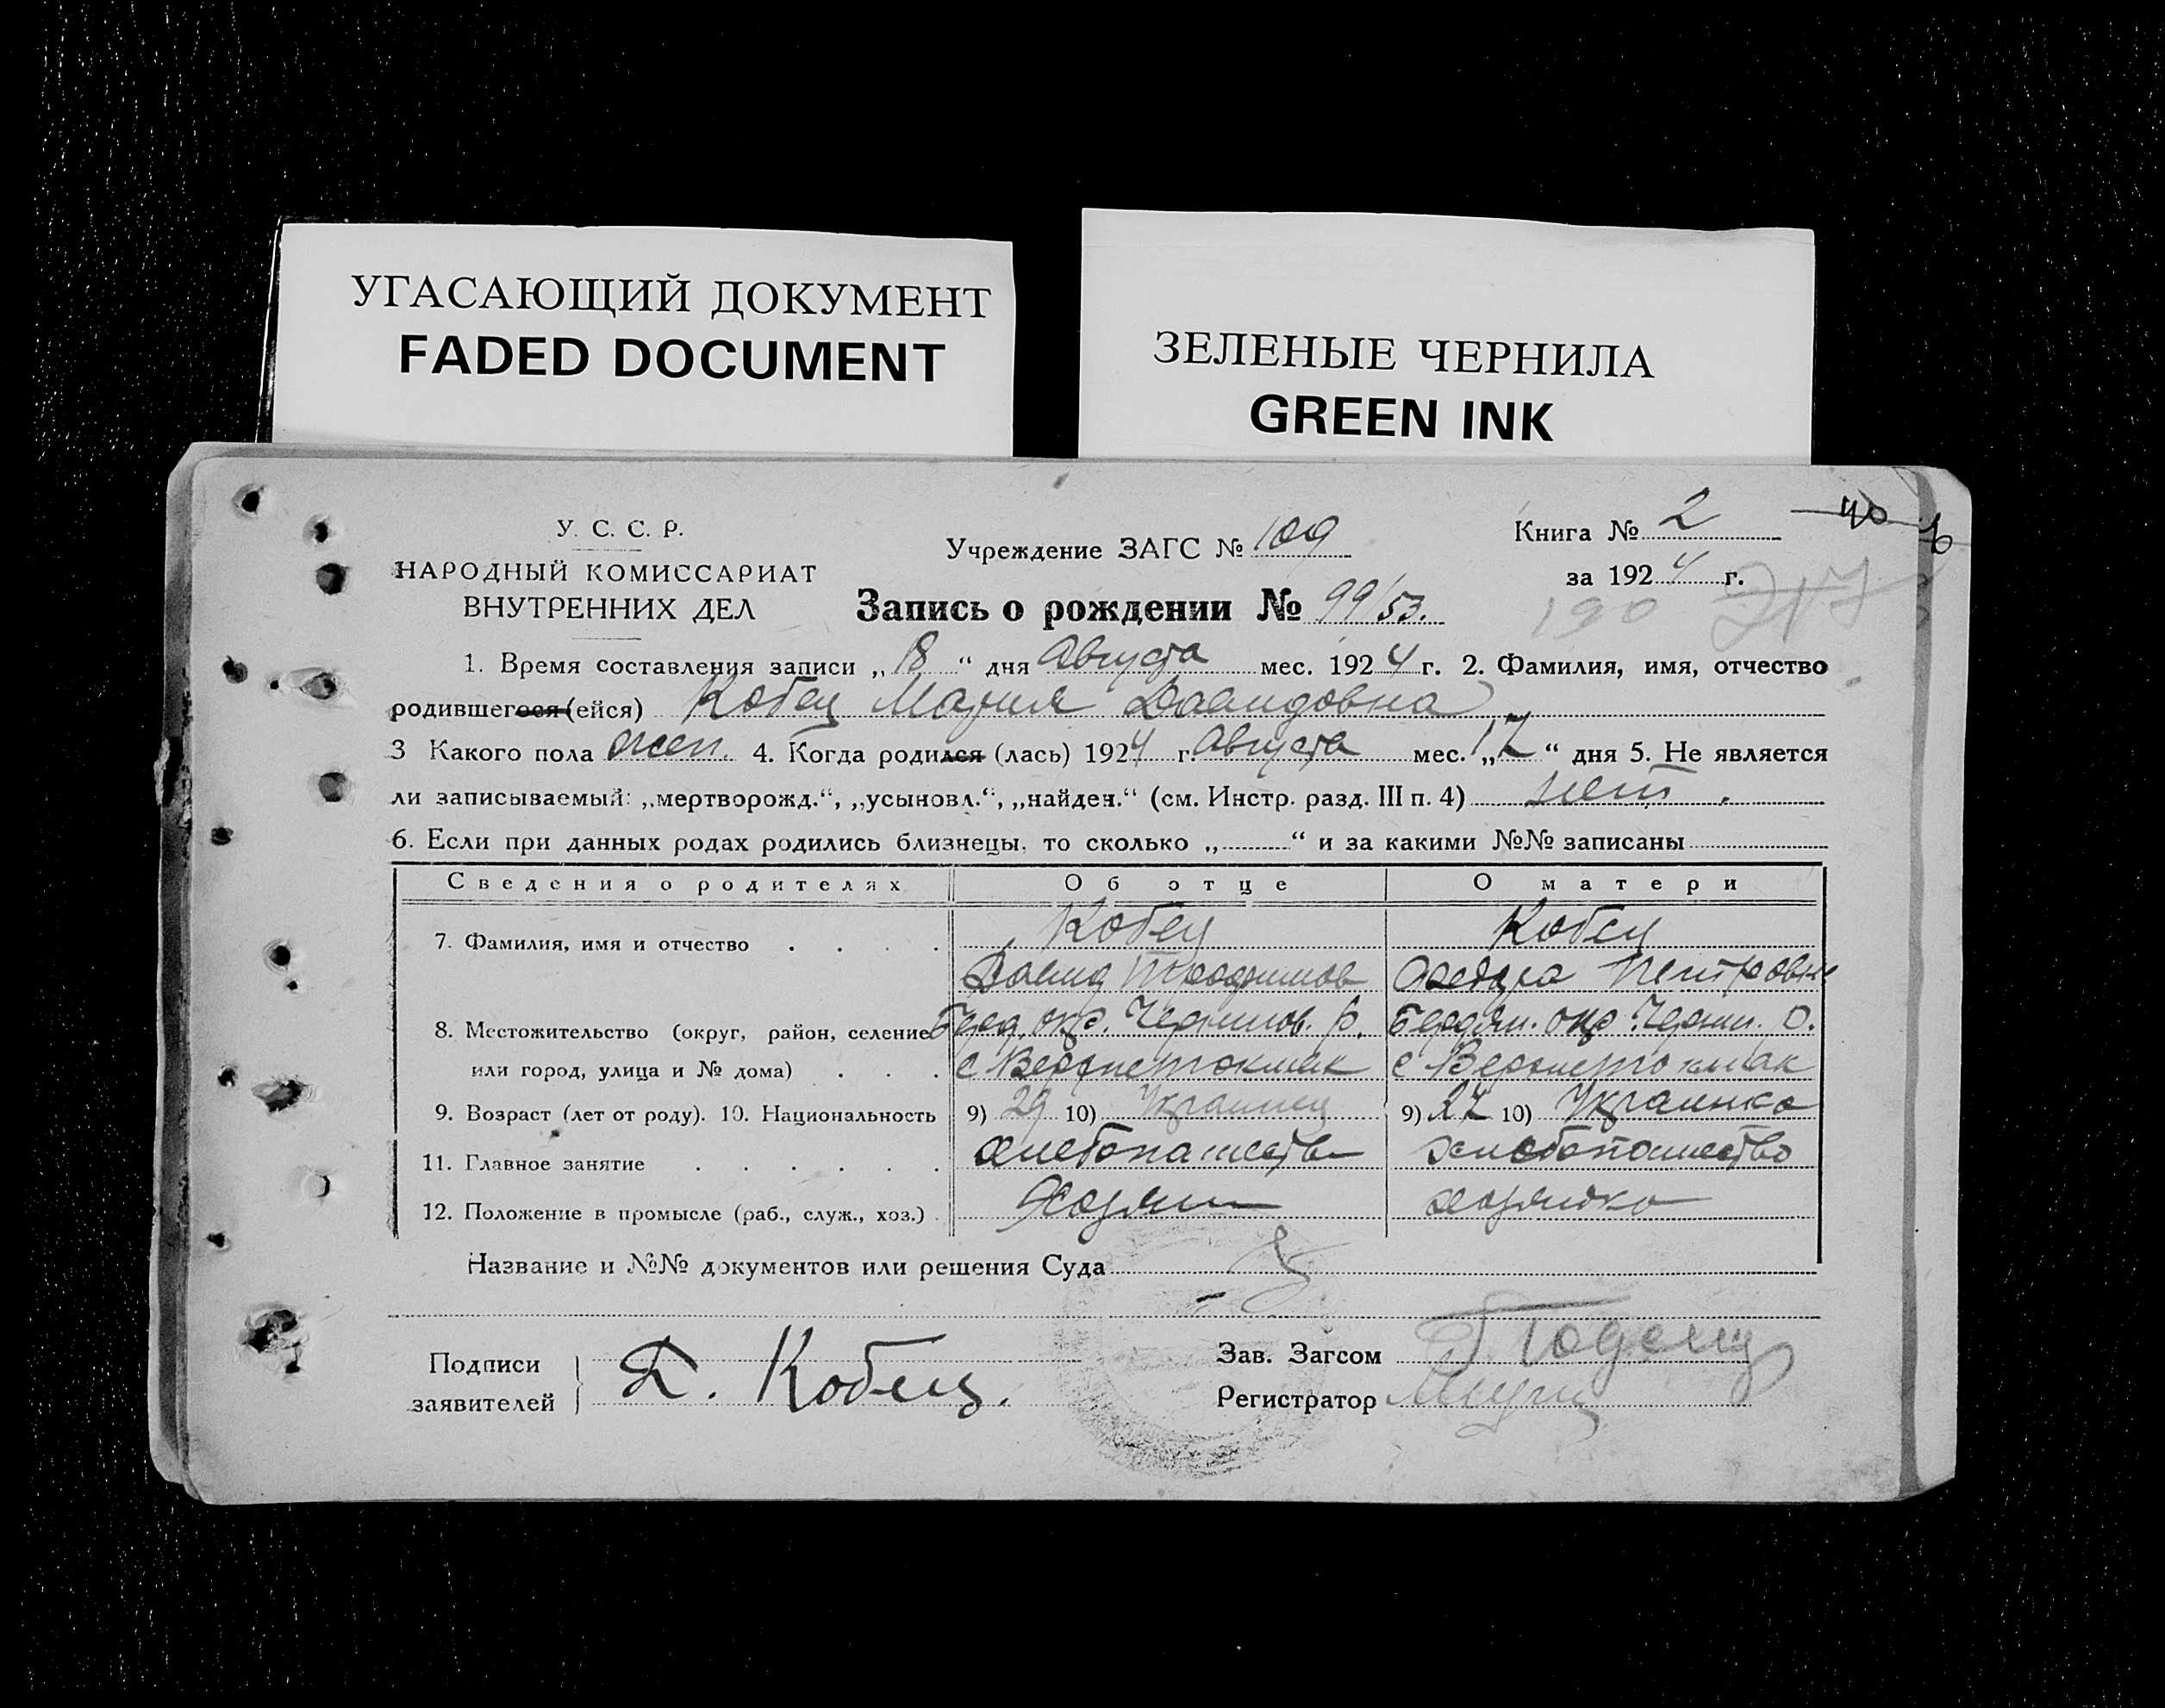 УГАСАЮЩИЙ ДОКУМЕНТ
FADED DOCUMENT
ЗЕЛЕНЫЕ ЧЕРНИЛА
GREEN INK
У. С. С. Р.
НАРОДНЫЙ КОМИССАРИАТ
ВНУТРЕННИХ ДЕЛ
Учреждение ЗАГС № 109
Книга № 2
за 1924 г.
190 317
Запись о рождении № 99/53.
1. Время составления записи „18“ дня Августа мес. 1924 г. 2. Фамилия, имя, отчество
родившегося (ейся) Кобец Мария Давидовна
3 Какого пола жен. 4. Когда родился (лась) 1924 г. Августа мес. „17“ дня 5. Не является
ли записываемый: „мертворожд.“, „усыновл.“, „найден.“ (см. Инстр. разд. III п. 4) нет.
6. Если при данных родах родились близнецы, то сколько „ “ и за какими №№ записаны
Сведения о родителях Об отце О матери
7. Фамилия, имя и отчество Кобец Кобец
Давид Трофимов Федора Петровна
8. Местожительство (округ, район, селение Берд. окр. Черниgов. р. Бердян. окр. Черни. р.
или город, улица и № дома) с Верхнетокмак с Верхнетокмак
9. Возраст (лет от роду). 10. Национальность 9) 29 10) Украинец 9) 27 10) Украинка
11. Главное занятие хлебопашество хлебопашество
12. Положение в промысле (раб., служ., хоз.) Хозяин хозяйка
Название и №№ документов или решения Суда
Подписи
заявителей Д. Кобец.
Зав. Загсом
Регистратор